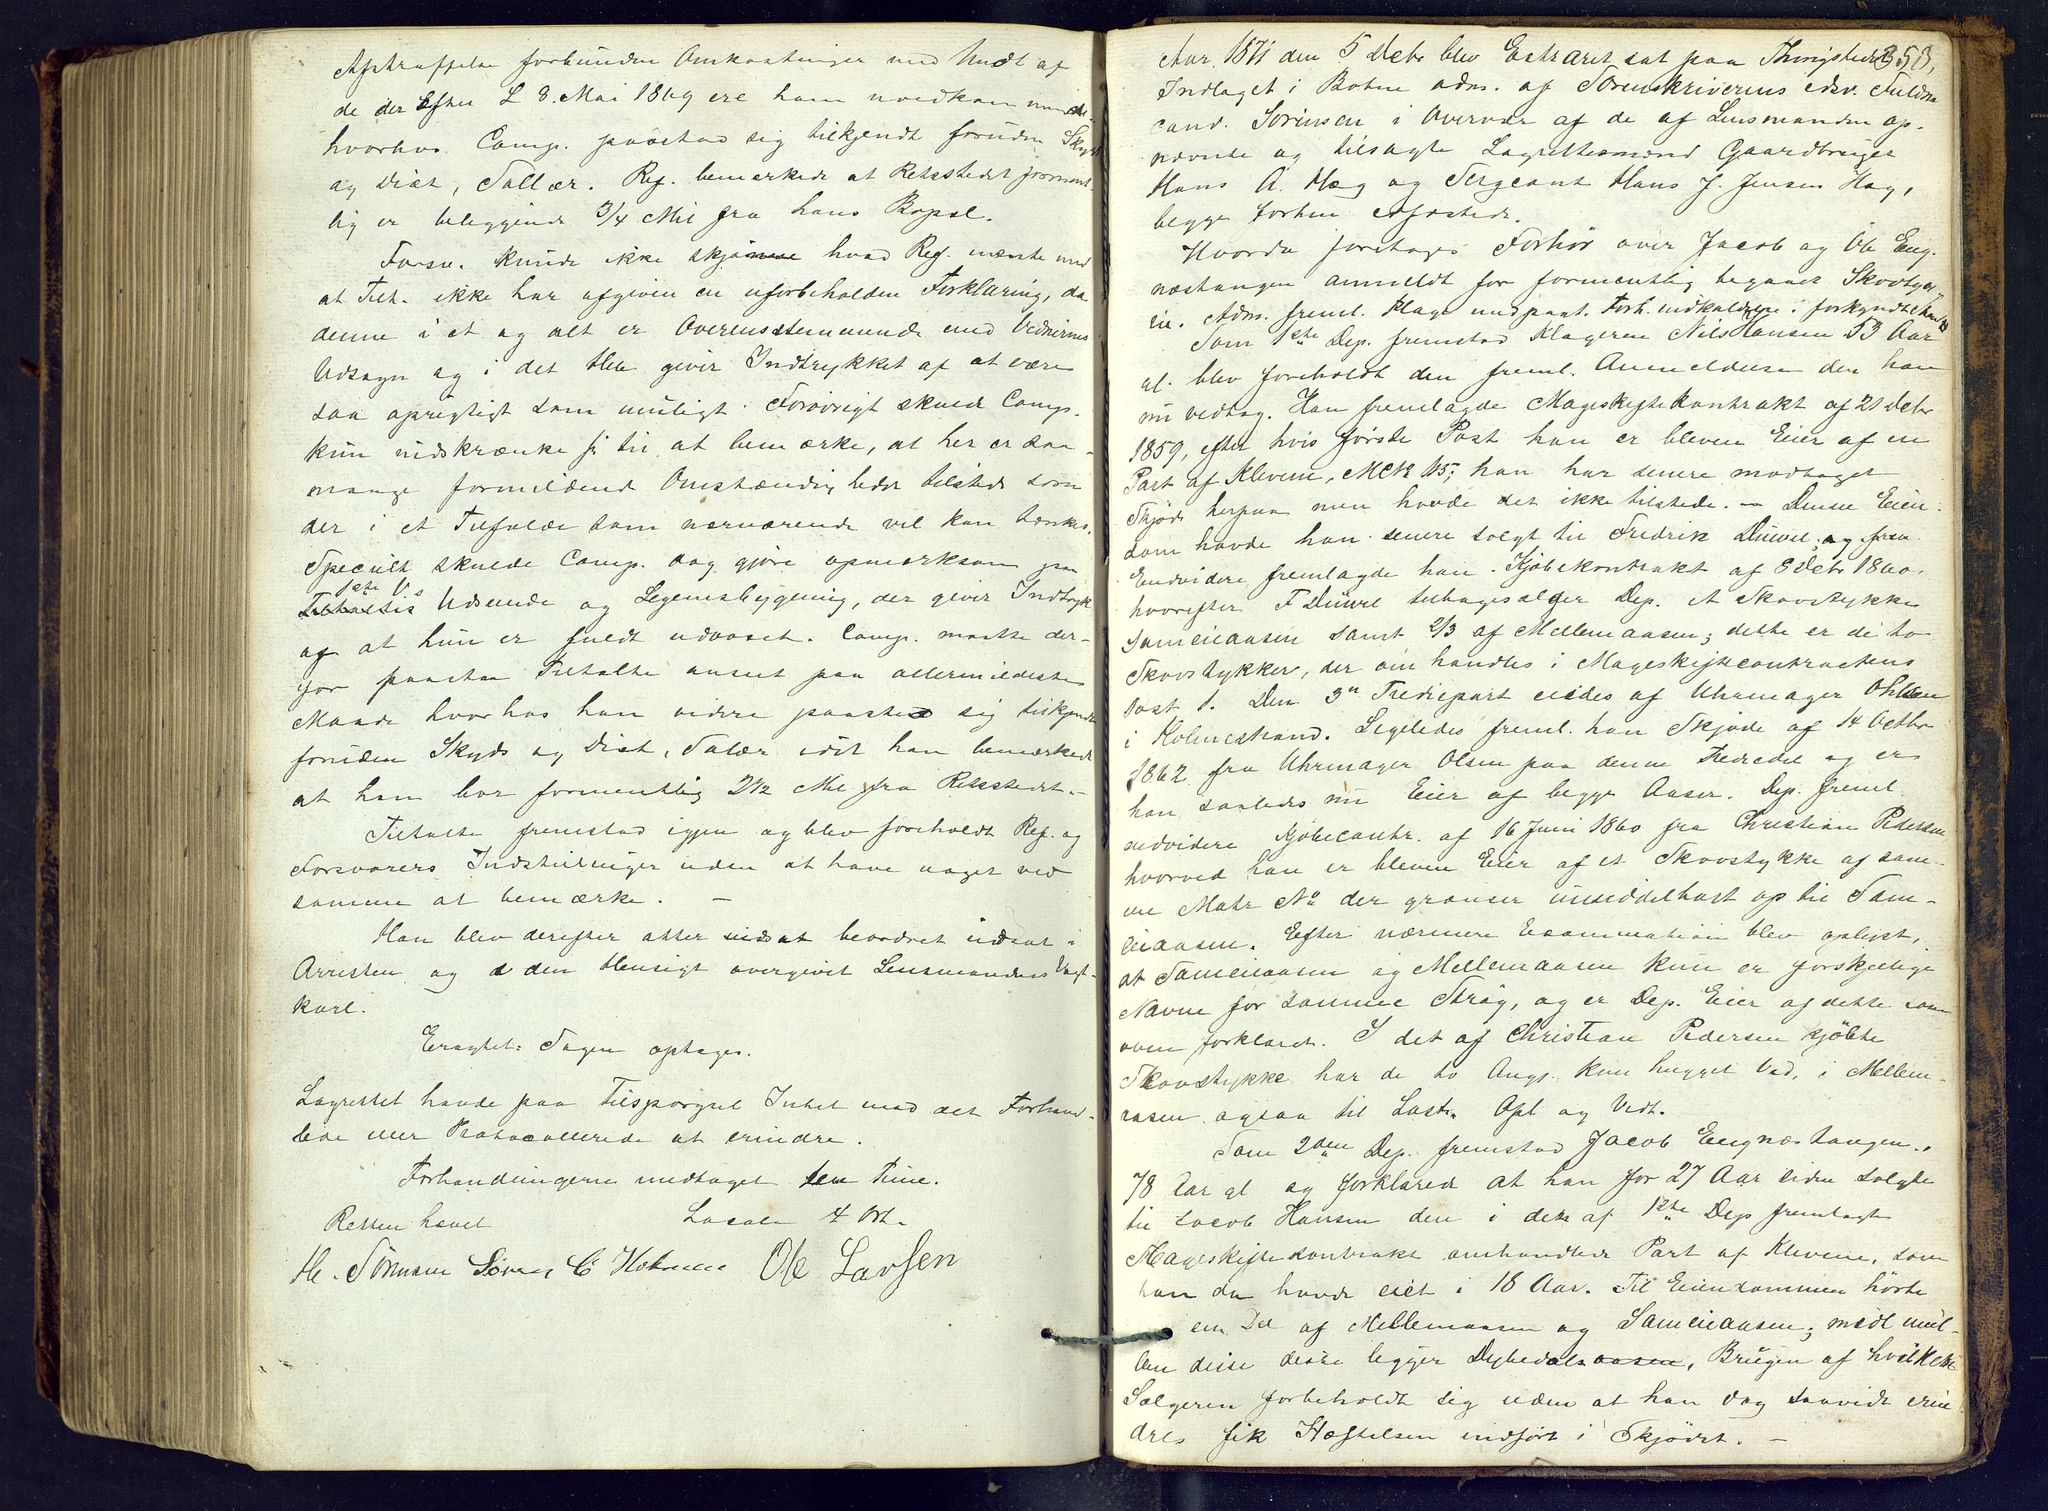 Afstraffelse forbundne Omkostninger med Undt af
de der efter L 8. Mai 1869 ere ham vedkommende
hvorhos Comp. paastod sig tilkjendt foruden Skyds
og Diæt, Sallær. Ref. bemerkede at Retsstedet forment-
lig er beliggende 3/4 Mil fra hans Bopæl.
Forsv. kunde ikke skjønne hvad Ref. mente med
at Tilt. ikke har afgiven en uforbeholden Forklaring, da
denne i et og alt er Overensstemmende med Vidnernes
Udsagn og i det Hele giver Indtrykket af at være
saa oprigtigt som muligt. Forøvrigt skulde Comp.
kun indskrænke sig til at bemærke, at her er saa
mange formildende Omstændigheder tilstede som
der i et Tilfælde som nærværende vil kan tænkes.
Specielt skulde Comp. dog gjøre opmærksom paa
1ste V.s Udseende og Legemsbygning, der giver Indtryk
af at hun er fuldt udvoxet. Comp. maatte der-
for paastaa Tiltalte anset paa allermildeste
Maade hvorhos han videre paastod sig tilkjendt
foruden Skyds og Diæt, Salær idet han bemærkede
at han bor formentlig 2 1/2 Mil fra Retsstedet.-
Tiltalte fremstod igjen og blev foreholdt Ref. og
Forsvarers Indstillinger uden at have noget ved
samme at bemærke. -
Han blev derefter atter beordret indsat i
Arresten og i den Hensigt overgivet Lensmandens Vagt-
karl.
Eragtet: Sagen optages.
Lagrettet havde paa Tilspørgsel Intet mod det Forhand-
lede eller Protocollerede at erindre.
Forhandlingerne medtaget een Time.
Retten hævet Locale 4 Ort.
H. Sørensen Søren C Holmsen Ole Larsen
353.
Aar 1871 den 5 Debr blev Extraret sat paa Thingstedet
Indlaget i Botne adm. af Sorenskriverens edsv. Fuldm.
cand. Sørensen i Overvær af de af Lensmanden op-
nævnte og tilsagte Lagrettesmænd Gaardbruger
Hans A. Hæg og Sergeant Hans J. Jensen Hag,
begge forhen edfæstede.
Hvorda foretages Forhør over Jacob og Ole Eng-
næstangen anmeldt for formentlig begaaet Skovtyve-
rie. Adm. freml. Klage med paat. Forh. indkaldelse i forkyndt Stand
Som 1ste Dep. fremstod Klageren Nils Hansen 53 Aar
gl. blev foreholdt den freml. Anmeldelse den han
nu vedtog. Han fremlagde Mageskiftekontrakt af 21 Debr
1859, efter hvis første Post han er bleven Eier af en
Part af Klevene, M No 115; han har senere modtaget
Skjøde herpaa men havde det ikke tilstede. - Denne Eien-
dom havde han senere solgt til Fredrik Düwel, og frem
Endvidere fremlagde han Kjøbekontrakt af 8 Debr 1860
hvorefter F Düwel tilbagesælger Dep. et Skovstykke
Sameieaasen samt 2/3 af Mellemaasen; dette er de to
Skovstykker, der omhandles i Mageskiftecontractens
Post 1. Den 3die Trediepart eiedes af Uhrmager Olsen
i Holmestrand. Ligeledes freml. han Skjøde af 14 Octbr
1862 fra Uhrmager Olsen paa denne Trediedel og er
han saaledes nu Eier af begge Aaser. Dep. freml.
endvidere Kjøbecontr. af 16 Juni 1860 fra Christian Pedersen
hvorved han er bleven Eier af et Skovstykke af sam-
me Matr No der grænser umiddelbart op til Sam-
eieaasen. Efter nærmere Examination blev oplyst,
at Sameieaasen og Mellemaasen kun er forskjellige
Navne for samme Strøg, og er Dep. Eier af dette som
oven forklaret. I det af Christian Pedersen kjøbte
Skovstykke har de to Angj. kun hugget Ved, i Mellem-
aasen ogsaa til Last. Opl og Vedt.
Som 2den Dep. fremstod Jacob Engnæstangen,
78 Aar gl og forklarede at han for 27 Aar siden solgte
til Jacob Hansen den i dette af 1ste Dep fremlagte
Mageskiftekontrakt omhandlede Part af Klevene, som
han da havde eiet i 18 Aar. Til Eiendommen hørte
en Del af Mellemaasen og Sameieaasen; midt mel-
lem disse ligger Dybedals, Brugen af hvilken
Sælgeren forbeholdt sig uden at han dog saavidt erin-
dres fik Hæftelsen indført i Skjødet. -